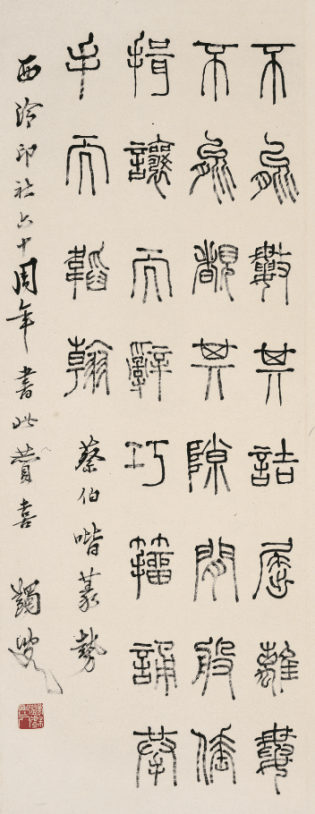 不能數其詰屈離婁
不能覩其隙間般倕
揖讓而辭巧籀誦拱
手而韜翰 蔡伯喈篆勢
西泠印社六十周年書此贊喜 蠲叟